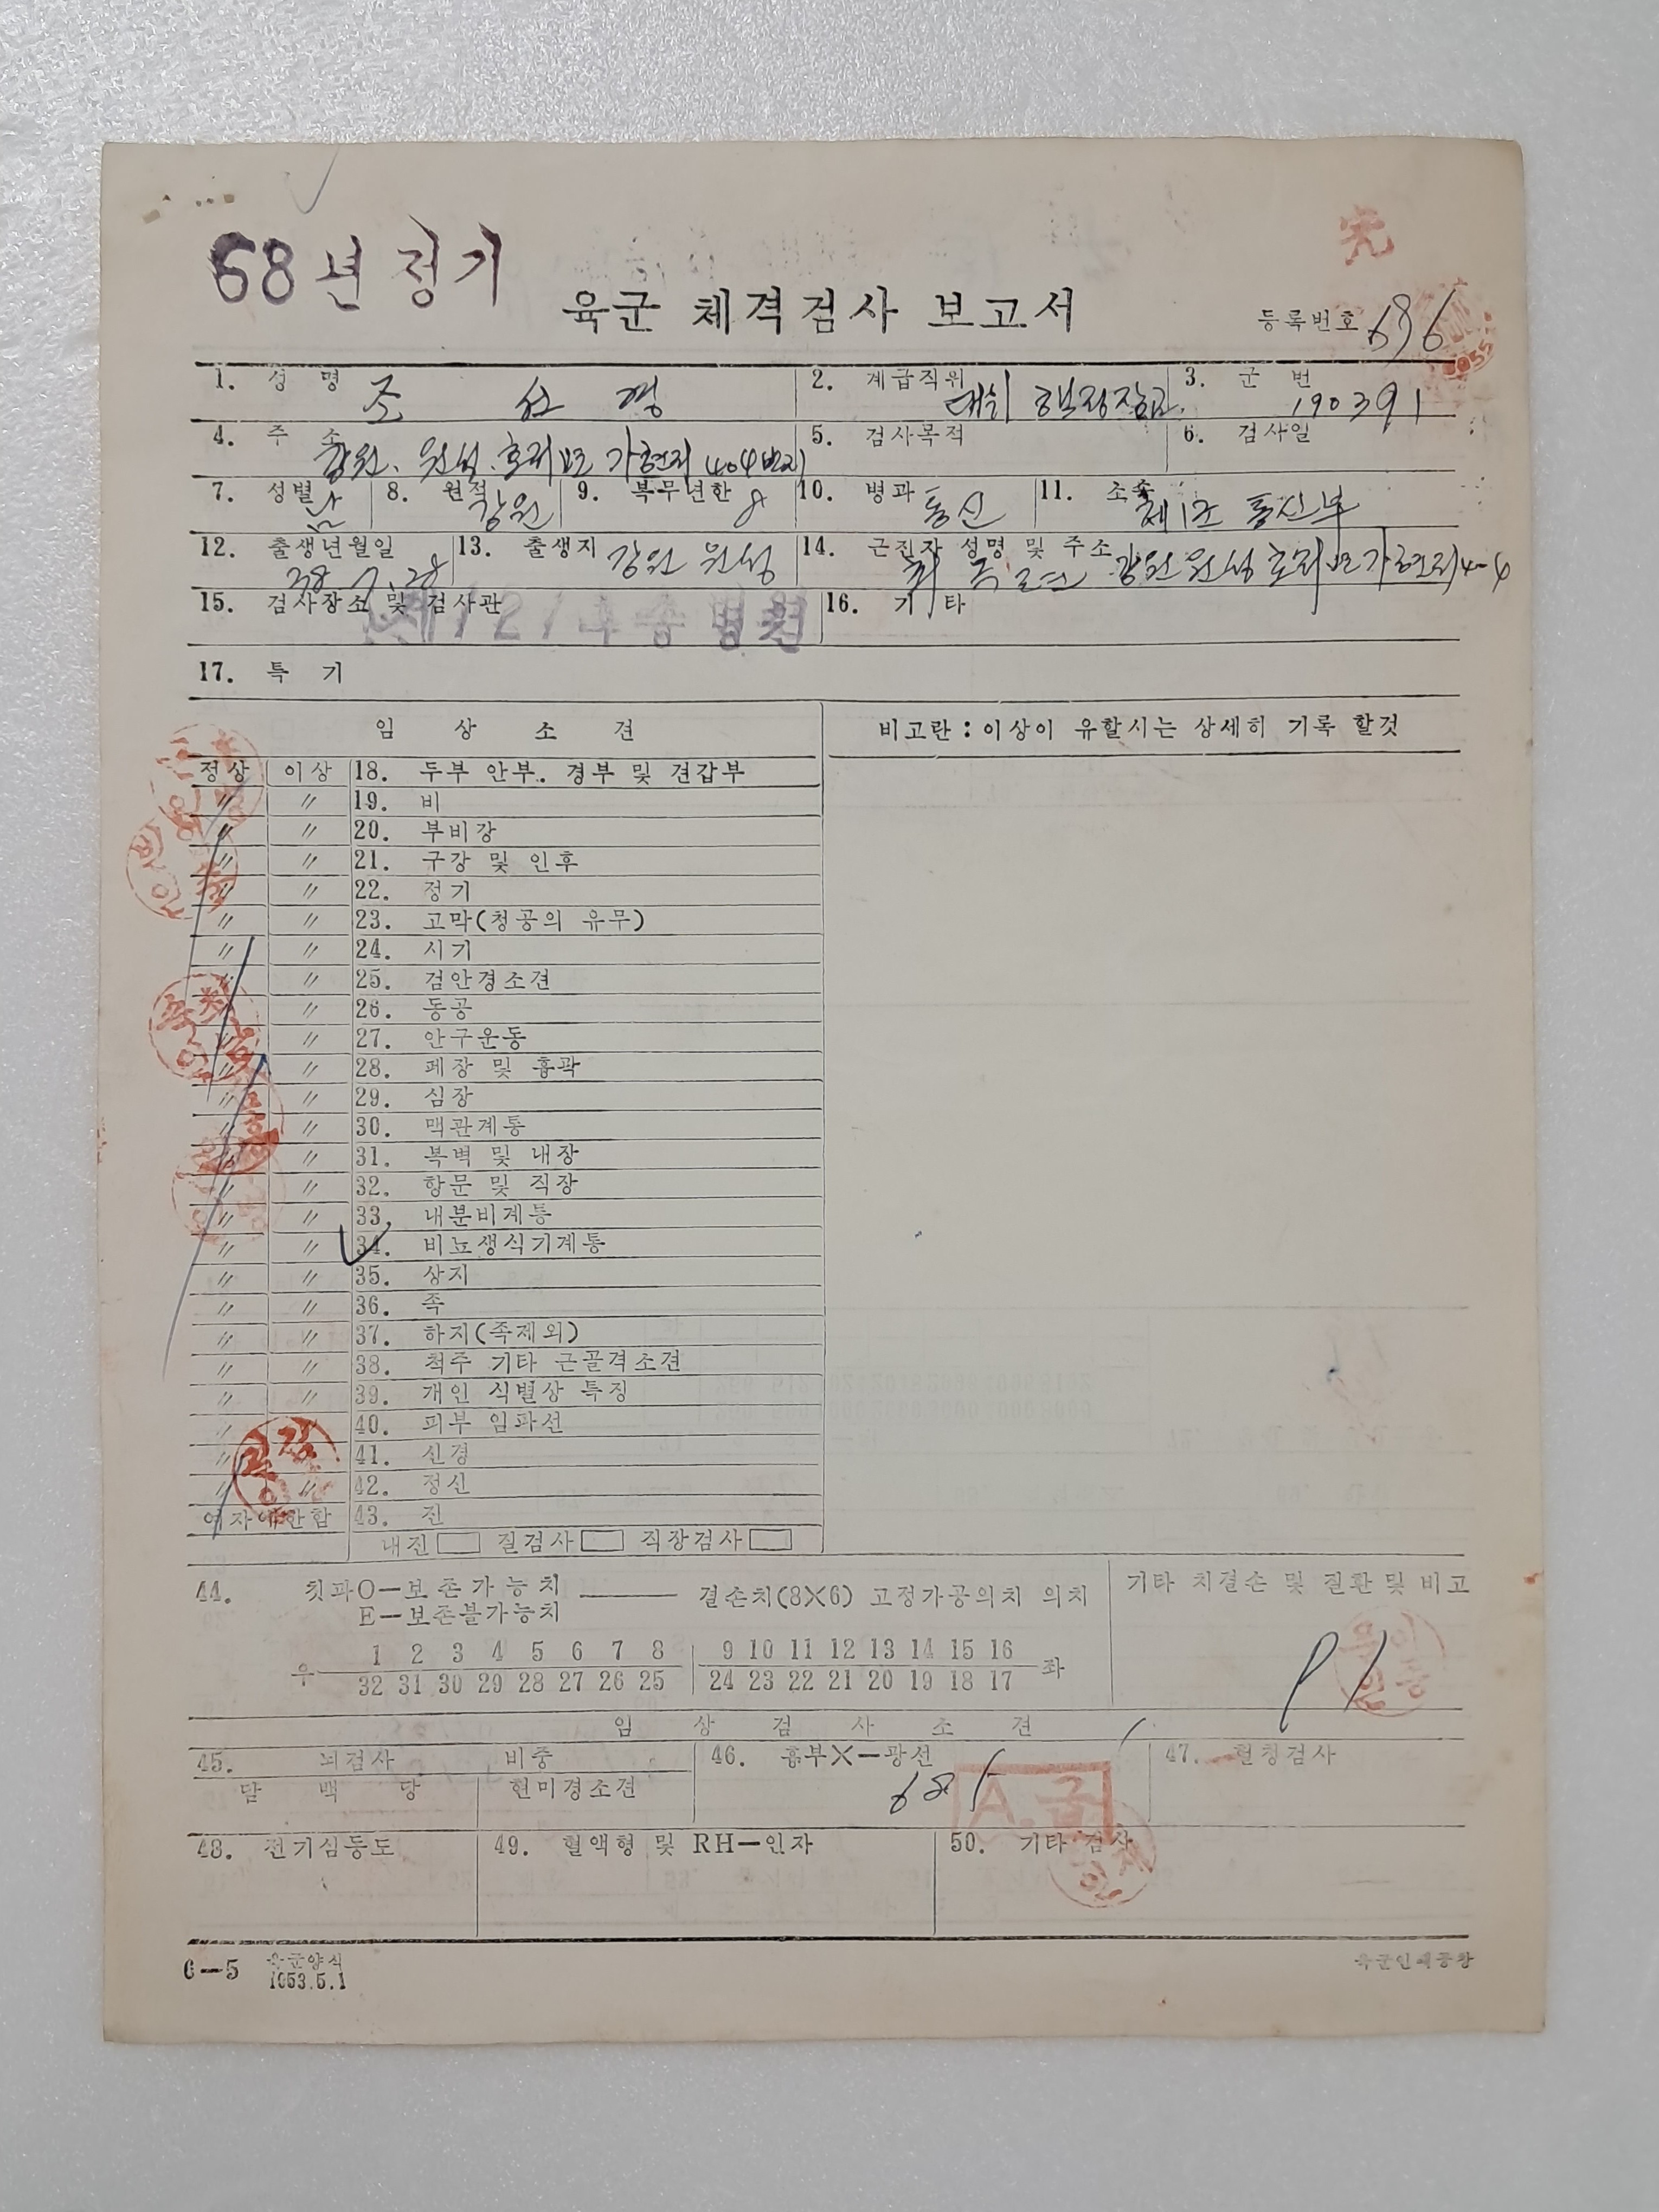 68년 정기
完
육군 체격검사 보고서
등록번호 696
1. 성 명 조 선 경
2. 계급직위 대위 행정장교
3. 군 번 190391
4. 주 소 강원. 원성. 호저면 가현리 404번지
5. 검사목적
6. 검사일
7. 성별 남
8. 원적 강원
9. 복무년한 8
10. 병과 통신
11. 소속 제1군 통신부
12. 출생년월일 38. 7. 28
13. 출생지 강원 원성
14. 근친자 성명 및 주소 강원 원성 호저면 가현리 4-4
15. 검사장소 및 검사관 제121후송병원
16. 기 타
17. 특 기
임 상 소 견
비고란 : 이상이 유할시는 상세히 기록 할것
정상 이상 18. 두부 안부. 경부 및 견갑부
〃 〃 19. 비
〃 〃 20. 부비강
〃 〃 21. 구강 및 인후
〃 〃 22. 정기
〃 〃 23. 고막(청공의 유무)
〃 〃 24. 시기
〃 〃 25. 검안경소견
〃 〃 26. 동공
〃 〃 27. 안구운동
〃 〃 28. 폐장 및 흉곽
〃 〃 29. 심장
〃 〃 30. 맥관계통
〃 〃 31. 복벽 및 내장
〃 〃 32. 항문 및 직장
〃 〃 33. 내분비계통
〃 〃 34. 비뇨생식기계통
〃 〃 35. 상지
〃 〃 36. 족
〃 〃 37. 하지(족제외)
〃 〃 38. 척주 기타 근골격소견
〃 〃 39. 개인 식별상 특징
〃 〃 40. 피부 임파선
〃 〃 41. 신경
〃 〃 42. 정신
여자에한함 43. 진
내진 질검사 직장검사
44. 칫파O—보존가능치 —— 결손치(8X6) 고정가공의치 의치
E—보존불가능치
기타 치결손 및 질환 및 비고
1 2 3 4 5 6 7 8 9 10 11 12 13 14 15 16
우 좌
32 31 30 29 28 27 26 25 24 23 22 21 20 19 18 17
P 1
임 상 검 사 소 견
45. 뇨검사 비중
담 백 당 현미경소견
46. 흉부X—광선
A.급
47. 혈청검사
48. 전기심동도
49. 혈액형 및 RH—인자
50. 기타 검사
6—5 육군양식
1953.5.1
육군인쇄공창